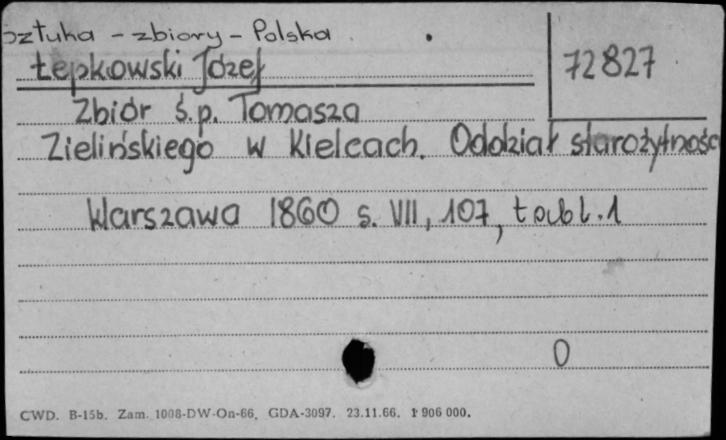 sztuka - zbiory - Polska
Łepkowski Józef
72827
Zbiór ś.p. Tomasza
Zielińskiego w Kielcach. Oddział starożytności
Warszawa 1860 s. VII, 107, tabl. 1
0
CWD. B-15b. Zam. 1008-DW-On-66, GDA-3097. 23.11.66. 1 906 000.